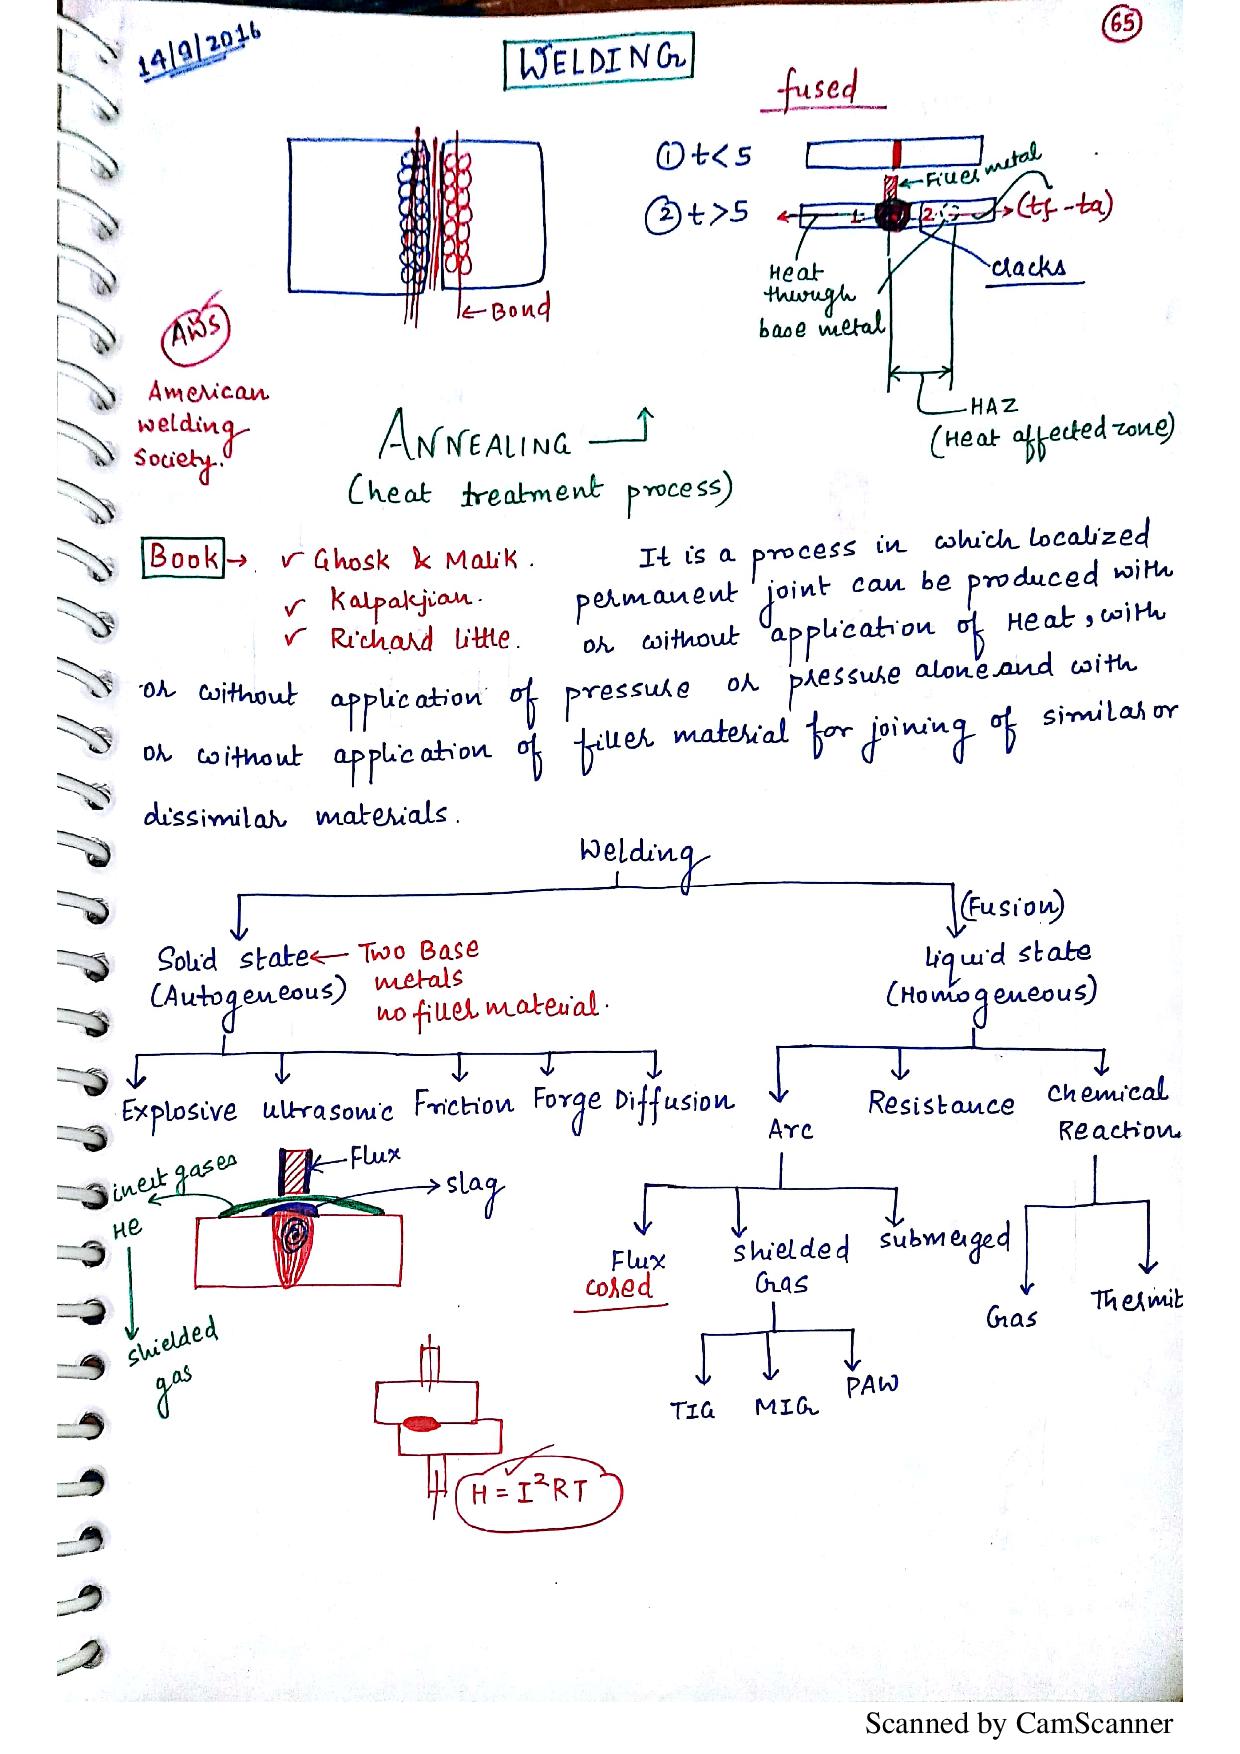 14/9/2016
65
WELDING
fused
① t<5
Filler metal
② t>5
1
2
(tf-ta)
cracks
Heat
through
base metal
Bond
AWS
American
welding
Society.
HAZ
(Heat affected zone)
ANNEALING
(heat treatment process)
Book → ✓ Ghosk & Malik.
✓ Kalpakjian.
✓ Richard little.
It is a process in which localized
permanent joint can be produced with
or without application of Heat, with
or without application of pressure or pressure alone and with
or without application of filler material for joining of similar or
dissimilar materials.
Welding
(Fusion)
Solid state ← Two Base
metals
no filler material.
(Autogeneous)
liquid state
(Homogeneous)
Explosive ultrasonic Friction Forge Diffusion
Arc
Resistance
Chemical
Reaction
inert gases
Flux
slag
He
shielded
gas
Flux
cored
shielded
Gas
submerged
Gas
Thermit
TIG MIG PAW
H = I²RT
Scanned by CamScanner